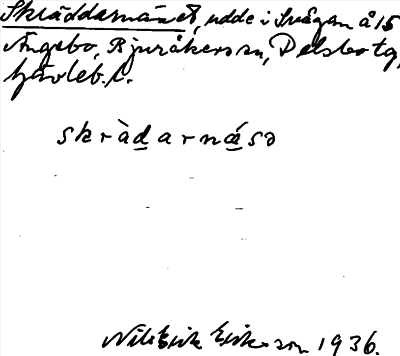 Skräddarnäset, udde i Svågan å 15
Ängebo, Bjuråkers sn, Delsbo tg,
Gävleb. l.
skràdarnásə
Nils Erik Eriksson 1936.